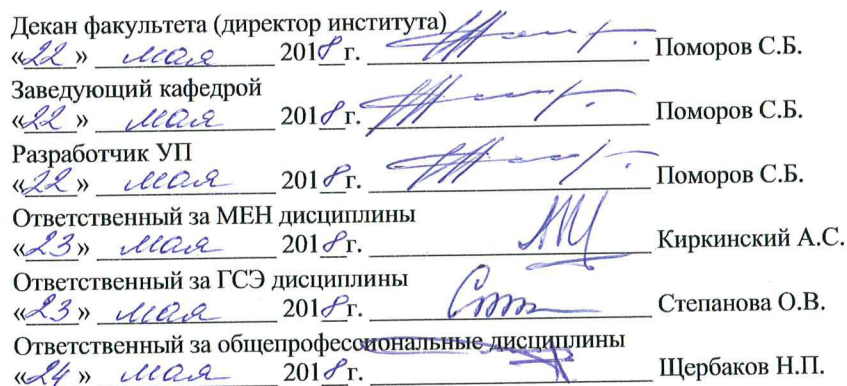 Декан факультета (директор института)
«22» мая 2018г. Поморов С.Б.
Заведующий кафедрой
«22» мая 2018г. Поморов С.Б.
Разработчик УП
«22» мая 2018г. Поморов С.Б.
Ответственный за МЕН дисциплины
«23» мая 2018г. Киркинский А.С.
Ответственный за ГСЭ дисциплины
«23» мая 2018г. Степанова О.В.
Ответственный за общепрофессиональные дисциплины
«24» мая 2018г. Щербаков Н.П.